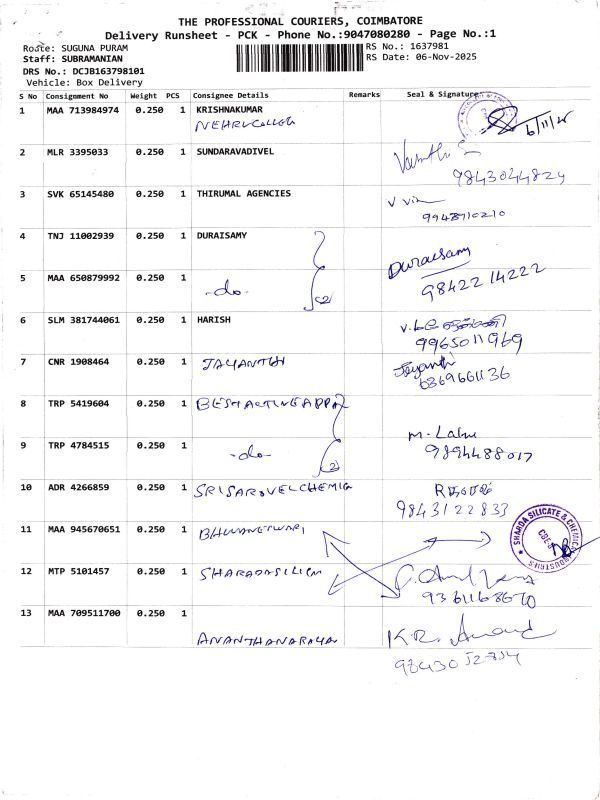 THE PROFESSIONAL COURIERS, COIMBATORE
Delivery Runsheet - PCK - Phone No.:9047080280 - Page No.:1
Route: SUGUNA PURAM
RS No.: 1637981
Staff: SUBRAMANIAN
RS Date: 06-Nov-2025
DRS No.: DCJB163798101
Vehicle: Box Delivery
S No Consignment No Weight PCS Consignee Details Remarks Seal & Signature
1 MAA 713984974 0.250 1 KRISHNAKUMAR
NEHRUCOLLEG
6/11/25
2 MLR 3395033 0.250 1 SUNDARAVADIVEL
9843044824
3 SVK 65145480 0.250 1 THIRUMAL AGENCIES
9948710210
4 TNJ 11002939 0.250 1 DURAISAMY
Duraisamy
5 MAA 650879992 0.250 1 -do- (2)
98422 14222
6 SLM 381744061 0.250 1 HARISH
9965011969
7 CNR 1908464 0.250 1 JAYANTHI
Jayanthi
6369661136
8 TRP 5419604 0.250 1
9 TRP 4784515 0.250 1 -do- (2)
9894488017
10 ADR 4266859 0.250 1
9843122833
11 MAA 945670651 0.250 1 BHUVANESWARI
SHARDA SILICATE & CHEMICAL INDUSTRIES
CBE
12 MTP 5101457 0.250 1 SHARADASILICA
9361168670
13 MAA 709511700 0.250 1
ANANTHANARAYA
K.R. Anand